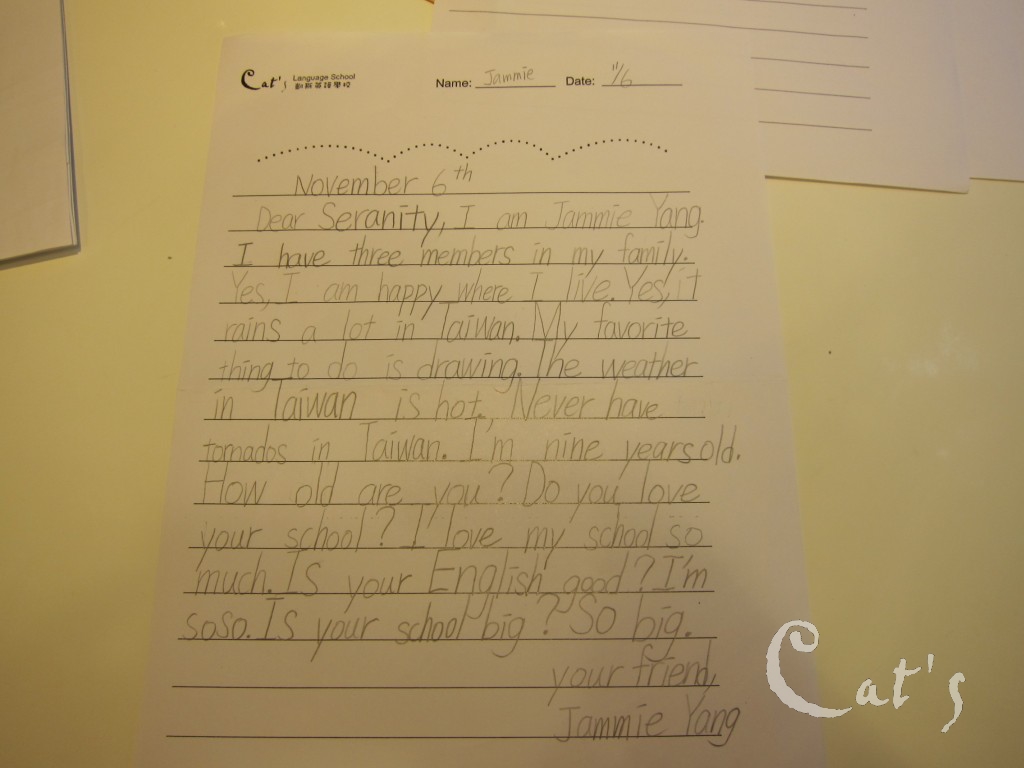 Cat's Language School
Name: Jammie Date: 11/6
November 6th
Dear Seranity, I am Jammie Yang.
I have three members in my family.
Yes, I am happy where I live. Yes, it
rains a lot in Taiwan. My favorite
thing to do is drawing. The weather
in Taiwan is hot, Never have
tornados in Taiwan. I'm nine years old.
How old are you? Do you love
your school? I love my school so
much. Is your English good? I'm
soso. Is your school big? So big.
your friend,
Jammie Yang
Cat's